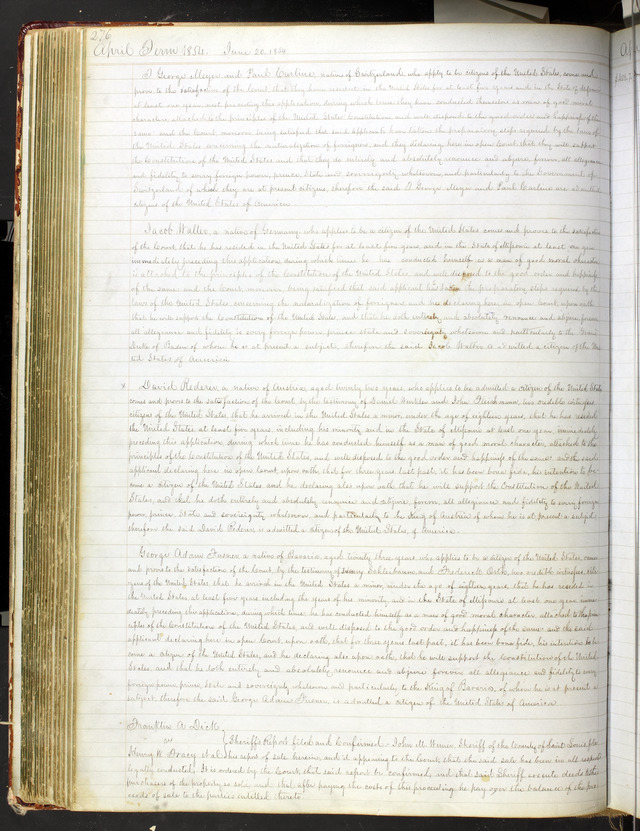 276
April Term 1854. June 20, 1854
D. George Meyer and Paul Curline, natives of Switzerland, who apply to be citizens of the United States, comes and
prove to the satisfaction of the Court that they have resided in the United States for at least five years and in the State of Missouri
at least one year next preceding this application, during which time they have conducted themselves as men of good moral
character, attached to the principles of the United States Constitution and well disposed to the good order and happiness of the
same and the Court moreover being satisfied that said applicants have taken the preparatory steps required by the laws of
the United States concerning the naturalization of foreigners, and they declaring here in open Court that they will support
the Constitution of the United States and that they do entirely and absolutely renounce and abjure forever, all allegiance
and fidelity to every foreign power, prince, State and sovereignty whatsoever, and particularly to the Government of
Switzerland of whom they are at present citizens, therefore the said D. George Meyer and Paul Curline are admitted
citizens of the United States of America
Jacob Walter, a native of Germany, who applies to be a citizen of the United States comes and proves to the satisfaction
of the Court, that he has resided in the United States for at least five years and in the State of Missouri at least one year
immediately preceding this application, during which time he has conducted himself as a man of good moral character
is attached to the principles of the Constitution of the United States, and well disposed to the good order and happiness
of the same and the Court moreover being satisfied that said applicant has taken the preparatory steps required by the
laws of the United States concerning the naturalization of foreigners and he declaring here, in open Court, upon oath
that he will support the Constitution of the United States and that he doth entirely and absolutely renounce and abjure forever
all allegiance and fidelity to every foreign power prince state and sovereignty whatsoever and particularly to the Grand
Duke of Baden of whom he is at present a subject, therefore the said Jacob Walter is admitted a citizen of the Uni-
ted States of America
x David Rederer, a native of Austria, aged twenty two years, who applies to be admitted a citizen of the United States
comes and proves to the satisfaction of the Court by the testimony of and John Fleishmann, two credible witnesses
citizens of the United States, that he arrived in the United States a minor, under the age of eighteen years, that he has resided
the United States at least five years including his minority and in the State of Missouri at least one year, immediately
preceding this application, during which time he has conducted himself as a man of good moral character, attached to the
principles of the Constitution of the United States, and well disposed to the good order and happiness of the same and the said
applicant declaring here in open Court upon oath, that for three years last past, it has been bona fide, his intention to be-
come a citizen of the United States and he declaring also upon oath that he will support the Constitution of the United
States, and that he doth entirely and absolutely renounce and abjure, forever, all allegiance and fidelity to every foreign
power, prince, State and sovereignty whatsoever, and particularly to the King of Austria of whom he is at present a subject,
therefore the said David Rederer, is admitted a citizen of the United States, of America.
George Adam Fresner a native of Bavaria, aged twenty three years who applies to be a citizen of the United States, comes
and proves to the satisfaction of the Court by the testimony of and Frederick two credible witnesses, citi-
zens of the United States that he arrived in the United States a minor, under the age of eighteen years, that he has resided in
the United States at least five years including the years of his minority and in the State of Missouri at least one year imme-
diately preceding this application, during which time he has conducted himself as a man of good moral character, attached to the prin-
ciples of the Constitution of the United States, and well disposed to the good order and happiness of the same and the said
applicant declaring here in open Court, upon oath, that for three years last past, it has been bona fide, his intention to be-
come a citizen of the United States, and he declaring also upon oath, that he will support the Constitution of the United
States and that he doth entirely and absolutely renounce and abjure forever all allegiance and fidelity to every
foreign power, prince, State and sovereignty whatsoever and particularly to the King of Bavaria of whom he is at present a
subject, therefore the said George Adam Fresner is admitted a citizen of the United States of America
Franklin A. Dick
vs } Sheriff's Report filed and Confirmed. John M. Wimer, Sheriff of the County of Saint Louis, files
Henry W. et al his report of sale herein, and it appearing to the Court, that the said sale has been in all respects
legally conducted. It is ordered by the Court, that said report be confirmed, and that said Sheriff execute deeds to the
purchasers of the property so sold, and that after paying the costs of this proceeding he pay over the balance of the pro-
ceeds of sale to the parties entitled thereto